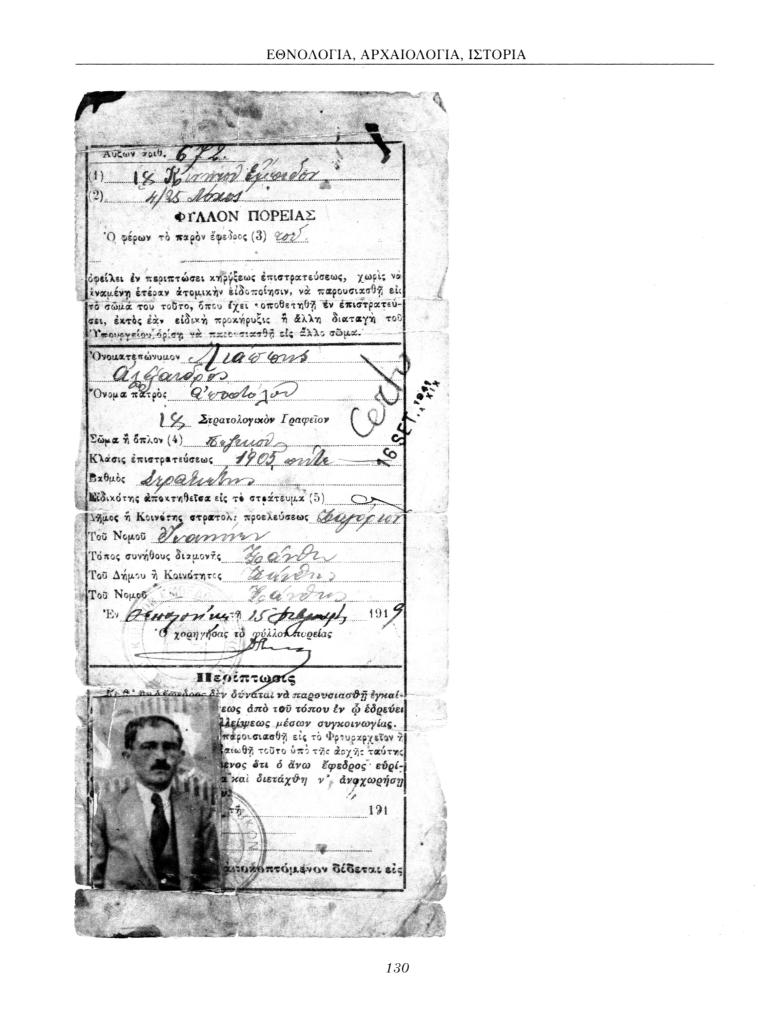 ΕΘΝΟΛΟΓΙΑ, ΑΡΧΑΙΟΛΟΓΙΑ, ΙΣΤΟΡΙΑ
Αὔξων ἀριθ. 672.
(1) 18
(2) 4/25 Λόχος
ΦΥΛΛΟΝ ΠΟΡΕΙΑΣ
Ὁ φέρων τὸ παρὸν ἔφεδρος (3) τοῦ
ὀφείλει ἐν περιπτώσει κηρύξεως ἐπιστρατεύσεως, χωρὶς νὰ
ἀναμένῃ ἑτέραν ἀτομικὴν εἰδοποίησιν, νὰ παρουσιασθῇ εἰς
τὸ σῶμα του τοῦτο, ὅπου ἔχει τοποθετηθῇ ἐν ἐπιστρατεύ-
σει, ἐκτὸς ἐὰν εἰδικὴ προκήρυξις ἢ ἄλλη διαταγὴ τοῦ
Ὑπουργείου ὁρίσῃ νὰ παρουσιασθῇ εἰς ἄλλο σῶμα.
Ὀνοματεπώνυμον Λιάππης
Ἀλέξανδρος
Ὄνομα πατρὸς Ἀποστόλου
18 Στρατολογικὸν Γραφεῖον
Σῶμα ἢ ὅπλον (4) Πεζικοῦ
Κλάσις ἐπιστρατεύσεως 1905
Βαθμὸς Στρατιώτης
Εἰδικότης ἀποκτηθεῖσα εἰς τὸ στράτευμα (5)
Δῆμος ἢ Κοινότης στρατολ. προελεύσεως
Τοῦ Νομοῦ Ἰωαννίνων
Τόπος συνήθους διαμονῆς Ξάνθη
Τοῦ Δήμου ἢ Κοινότητος Ξάνθης
Τοῦ Νομοῦ Ξάνθης
Ἐν Θεσσαλονίκῃ τῇ 15 1919
Ὁ χορηγήσας τὸ φύλλον πορείας
16 SET. 1941 XIX
Περίπτωσις
ἔφεδρος δὲν δύναται νὰ παρουσιασθῇ ἐγκαί-
εως ἀπὸ τοῦ τόπου ἐν ᾧ ἑδρεύει
λλείψεως μέσων συγκοινωγίας.
παρουσιασθῇ εἰς τὸ Φρουραρχεῖον ἢ
αιωθῇ τοῦτο ὑπὸ τῆς ἀρχῆς ταύτης
ενος ὅτι ὁ ἄνω ἔφεδρος εὑρί-
α καὶ διετάχθη ν' ἀναχωρήσῃ
τῇ 191
ἀποκοπτόμενον δίδεται εἰς
130